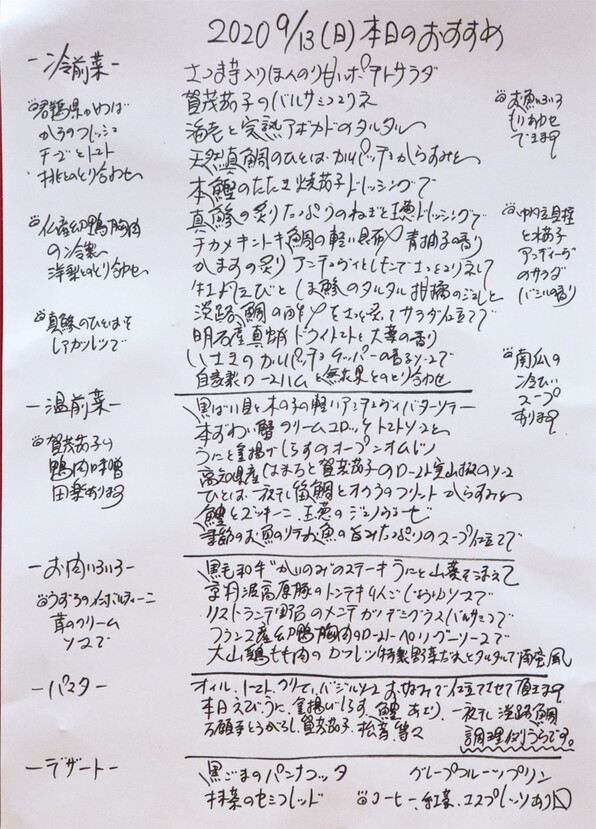 2020 9/13(日)本日のおすすめ
-冷前菜-
さつま芋入りほんのり甘いポテトサラダ
賀茂茄子のバルサミコマリネ
海老と完熟アボカドのタルタル
天然真鯛のひとしおカルパッチョからすみと
本鰹のたたき焼茄子ドレッシングで
真鯵の炙りたっぷりのねぎと玉葱ドレッシングで
チカメキントキ鯛の軽い昆布〆青柚子の香り
かますの炙りアンチョヴィとレモンでさっとマリネして
牡丹えびとしま鯵のタルタル柑橘のジュレと
淡路鯛の
サラダ仕立てで
明石産真蛸ドライトマトと大葉の香り
いさきのカルパッチョケッパーの香るソースで
自家製ロースハムと無花果とのとり合わせ
チーズとトマト
桃とのとり合わせ
仏産幼鴨胸肉
の冷製
洋梨とのとり合わせ
真鯵のひとしお
レアカツレツで
お魚いろいろ
もりあわせ
できます
帆立貝柱
と水茄子
アンディーブ
のサラダ
バジルの香り
南瓜の
冷たい
スープ
あります
-温前菜-
黒ばい貝と木の子の軽いアンチョヴィバターソテー
本ずわい蟹クリームコロッケトマトソースと
うにと釜揚げしらすのオープンオムレツ
高知県産はまちと賀茂茄子のロースト実山椒のソース
ひとしお一夜干し笛鯛とオクラのフリットからすみと
鱧とズッキーニ、玉葱のジェノヴェーゼ
季節のお魚のソテーお魚の旨みたっぷりのスープ仕立てで
賀茂茄子
鴨肉味噌
田楽あります
-お肉いろいろ-
黒毛和牛“かいのみ”のステーキうにと山葵をそえて
京丹波高原豚のトンテキりんごじょうゆソースで
リストランテ野呂のメンチカツデミグラスバルサミコで
フランス産幼鴨胸肉のローストペリグーソースで
大山鶏もも肉のカツレツ特製野菜だれとタルタルで南蛮風
うずらのインボルティーニ
茸のクリーム
ソースで
-パスタ-
オイル、トマト、クリーム、バジルソースお好みで仕立てさせて頂きます
本日えび、うに、釜揚げしらす、鱧、あさり、一夜干し淡路鯛
万願寺とうがらし、賀茂茄子、松茸、等々
調理ばりうらです。
-デザート-
黒ごまのパンナコッタ
グレープフルーツプリン
抹茶のセミフレッド
コーヒー、紅茶、エスプレッソあり〼